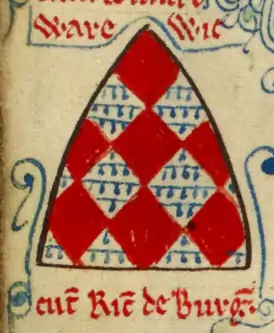 ware wic
cut̄ Ric̄ de Burḡ